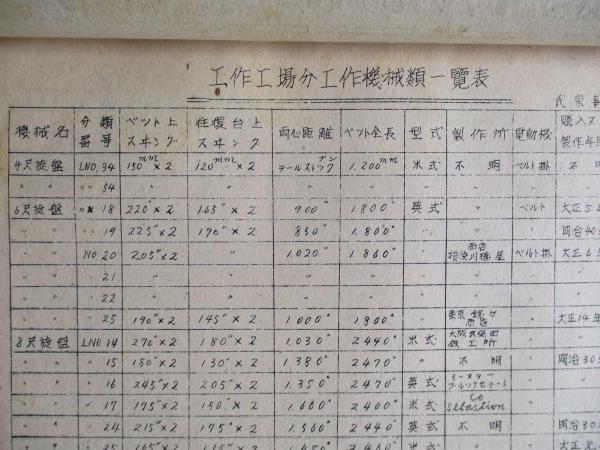 工作工場分工作機械類一覧表
機械名 分類番号 ベット上スヰング 往復台上スヰング 両心距離 ベット全長 型式 製作所 電動機 購入又 製作年月
4尺旋盤 LNO.34 150mm×2 120mm×2 テールストック ナシ 1.200mm 米式 不明 ベルト掛 不
〃 〃 〃 54 〃 〃 〃 〃 〃 〃 〃 〃
6尺旋盤 〃 18 220〃×2 165〃×2 900〃 1.800〃 英式 〃 ベルト 大正5
〃 〃 〃 19 225〃×2 170〃×2 850〃 1.800〃 〃 〃 〃 明治40
〃 〃 NO 20 205〃×2 〃 1.020〃 1.860〃 〃 商店 〃 ベルト掛 大正6
〃 〃 〃 21 〃 〃 〃 〃 〃 〃 〃 〃
〃 〃 〃 22 〃 〃 〃 〃 〃 〃 〃 〃
〃 〃 〃 25 190〃×2 145〃×2 1.000〃 1.800〃 〃 東京 商店 〃 大正14年
8尺旋盤 LNO 14 270〃×2 180〃×2 1.030〃 2440〃 米式 大阪久保田鉄工所 〃 〃
〃 〃 〃 15 180〃×2 130〃×2 1.380〃 2470〃 〃 不明 〃 明治30
〃 〃 〃 16 245〃×2 205〃×2 1.350〃 2470〃 英式 〃 〃
〃 〃 〃 17 175〃×2 150〃×2 1.660〃 2400〃 米式 Co Sebastion 〃 〃
〃 〃 〃 24 215〃×2 175〃×2 1.560〃 2440〃 英式 不明 〃 明治30
〃 〃 〃 25 165〃×2 〃×2 1.450〃 2460〃 米式 〃 〃 大正